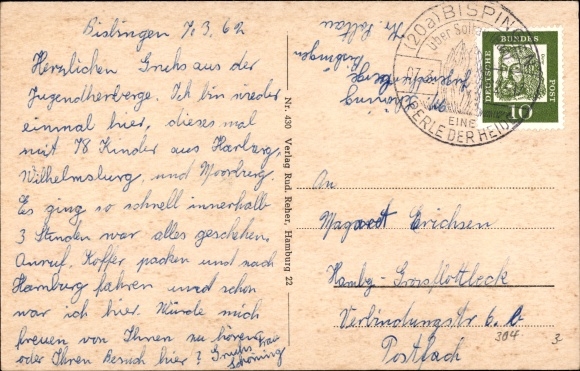 Bislingen 7.3.62
Herzlichen Gruhs aus der
Jugendherberge. Ich bin wieder
einmal hier, dieses mal
mit 78 Kinder aus Harburg,
Wilhelmsburg, und Moorburg.
Es ging so schnell innerhalb
3 Stunden war alles geschehen.
Anruf, Koffer packen und nach
Hamburg fahren und schon
war ich hier. Würde mich
freuen von Ihnen zu hören
oder Ihren Besuch hier? Gruhs Frau
Schöning
Nr. 430 Verlag Rud. Reher, Hamburg 22
Schöning
Jugendherberge
Bispingen
Kr. Soltau
(20a) BISPINGEN
über Soltau
EINE
PERLE DER HEIDE
DEUTSCHE BUNDESPOST
10
An
Magaret Erichsen
Hambg-Grossflottbeck
Verbindungsstr 6. b
Postfach
304
3